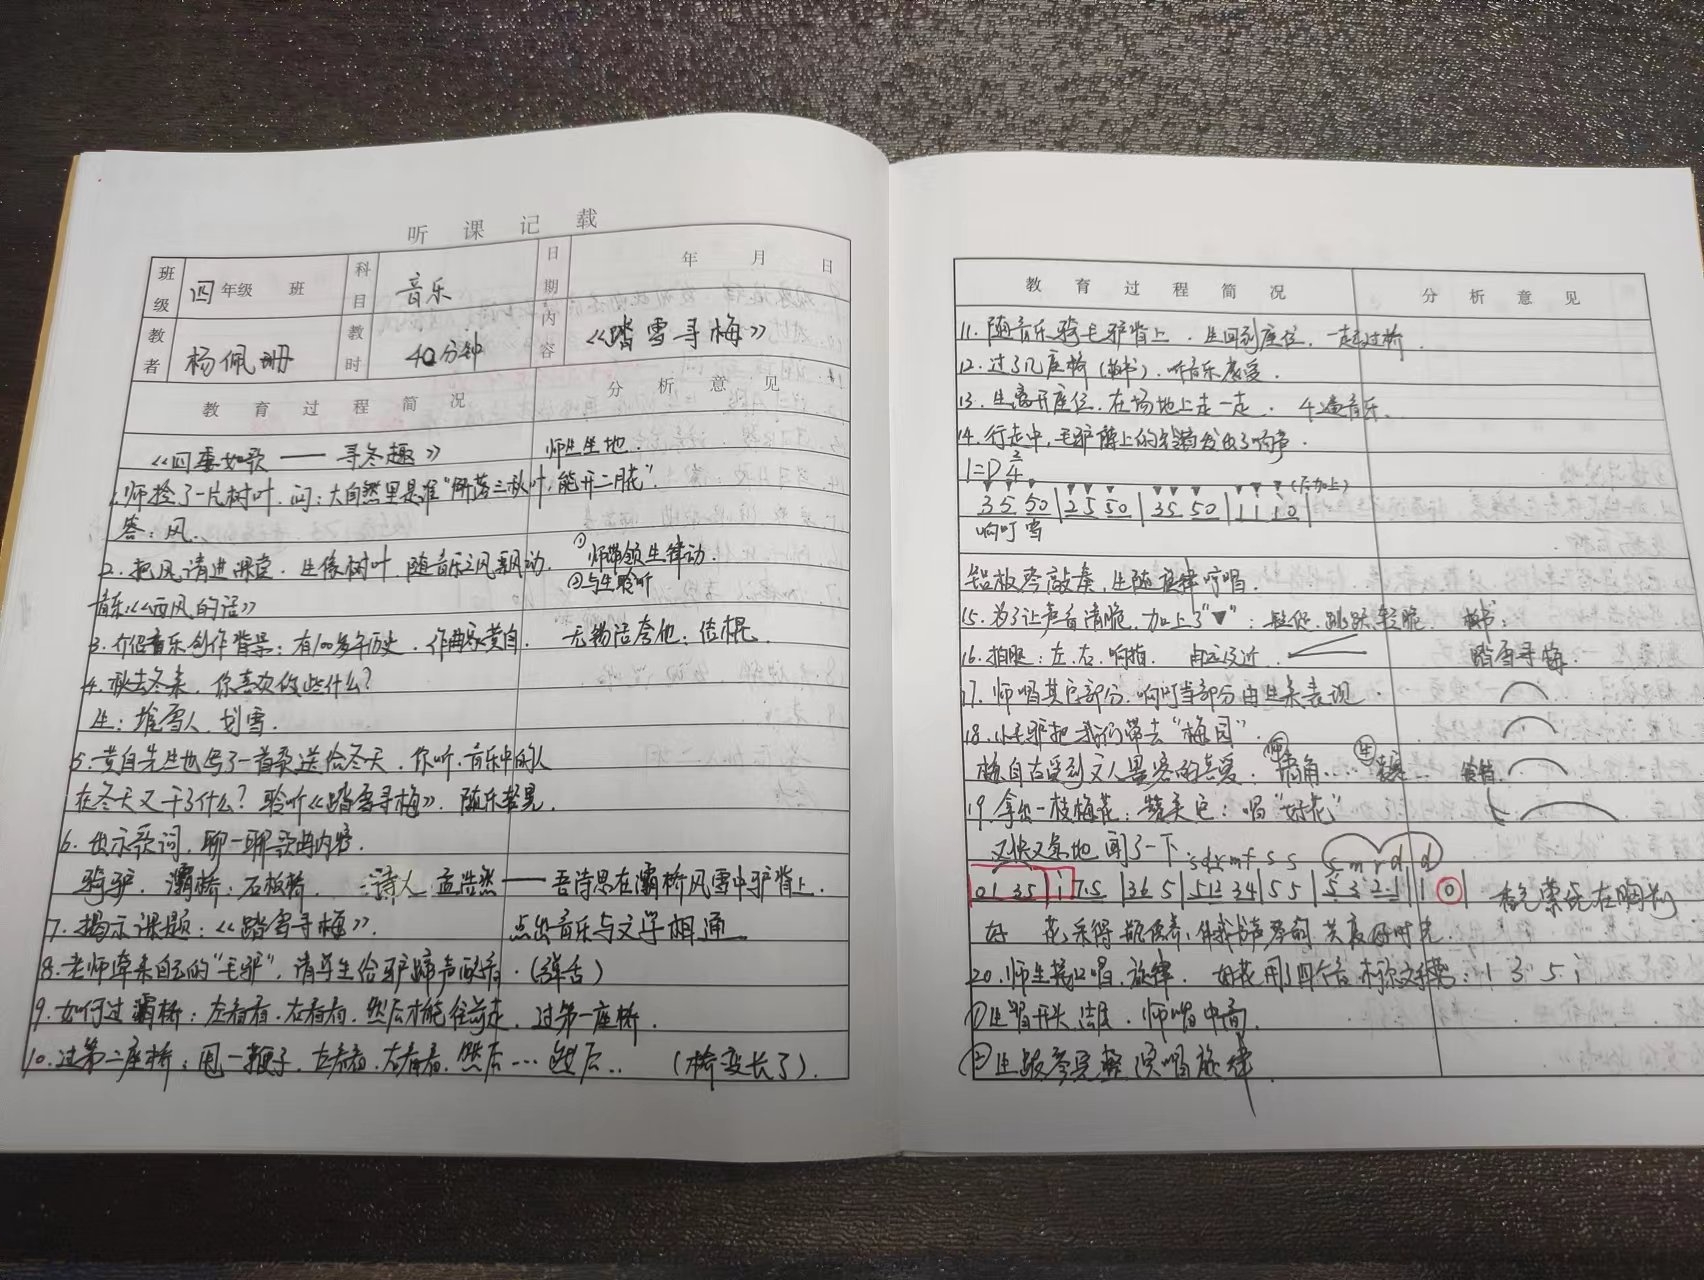 听课记载
班级 四年级 班 科目 音乐 日期 年 月 日
教者 杨佩珊 教时 40分钟 内容 《踏雪寻梅》
教育过程简况 分析意见
《四季如歌——寻冬趣》 师生坐地.
1.师捡了一片树叶.问:大自然里是谁"解落三秋叶,能开二月花".
答:风.
2.把风请进课堂.生像树叶.随音乐之风飘动. ①师带领生律动.
音乐《西风的话》 ②与生聆听
3.介绍音乐创作背景:有100多年历史.作曲家黄自.
4.秋去冬来.你喜欢做些什么?
生:堆雪人.划雪.
5.黄自先生也写了一首歌送给冬天.你听.音乐中的人
在冬天又干了什么?聆听《踏雪寻梅》.随乐
6.出示歌词.聊一聊歌曲内容.
骑驴.灞桥:石板桥. 诗人 孟浩然——吾诗思在灞桥风雪中驴背上.
7.揭示课题:《踏雪寻梅》. 点出音乐与文学相通
8.老师牵来自己的"毛驴",请学生给驴蹄声配音.(弹舌)
9.如何过灞桥:左看看.右看看.然后才能往前走.过第一座桥.
10.过第二座桥:甩一鞭子.左看看.右看看.然后…… (桥变长了).
教育过程简况 分析意见
11.随音乐骑毛驴背上.生回到座位.一起过桥
12.过了几座桥(板书).听音乐感受.
13.生离开座位.在场地上走一走. 音乐.
14.行走中,毛驴脖上的铃铛发出了响声.
1=D 2/4
▼▼▼▼▼▼▼▼▼(后加上)
3 5 50|25 50|35 50|11 10|
响叮当
铝板琴敲奏,生随旋律哼唱.
15.为了让声音清脆.加上了"▼":短促.跳跃 轻脆. 板书:
16.拍腿:左.右.响指.由远及近. 踏雪寻梅.
17.师唱其它部分.响叮当部分由生来表现
18.小毛驴把我们带去"梅园".
梅自古受到文人墨客的喜爱. 师 墙角…… 生
19.拿出一枝梅花: 唱"好花"
又快又急地闻了一下 s d r m f s s s m r d d
01 35|i 7 5|36 5|512 34|55|5 3 2 1|1 0|
好 花采得瓶供养,伴我书声琴韵 共度好时光.
20.师生接口唱.旋律. 好花用了四个音 1 3 5 i
①生唱开头 .师唱中间
②生跟琴完整演唱旋律